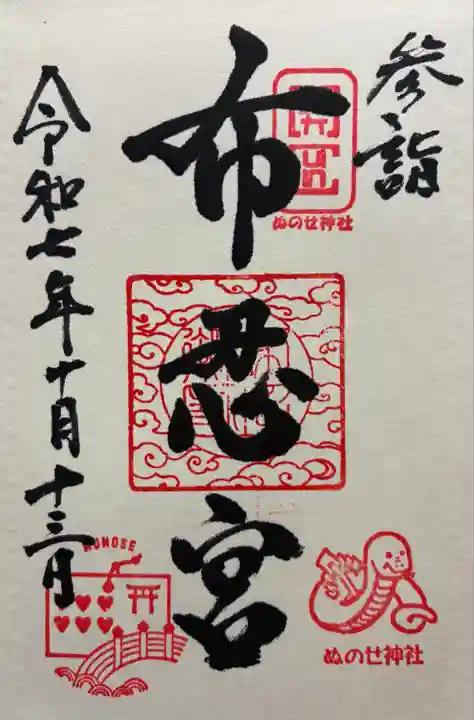 参詣
開運
ぬのせ神社
布忍宮
ぬのせ神社
令和七年十月十三日
NUNOSE